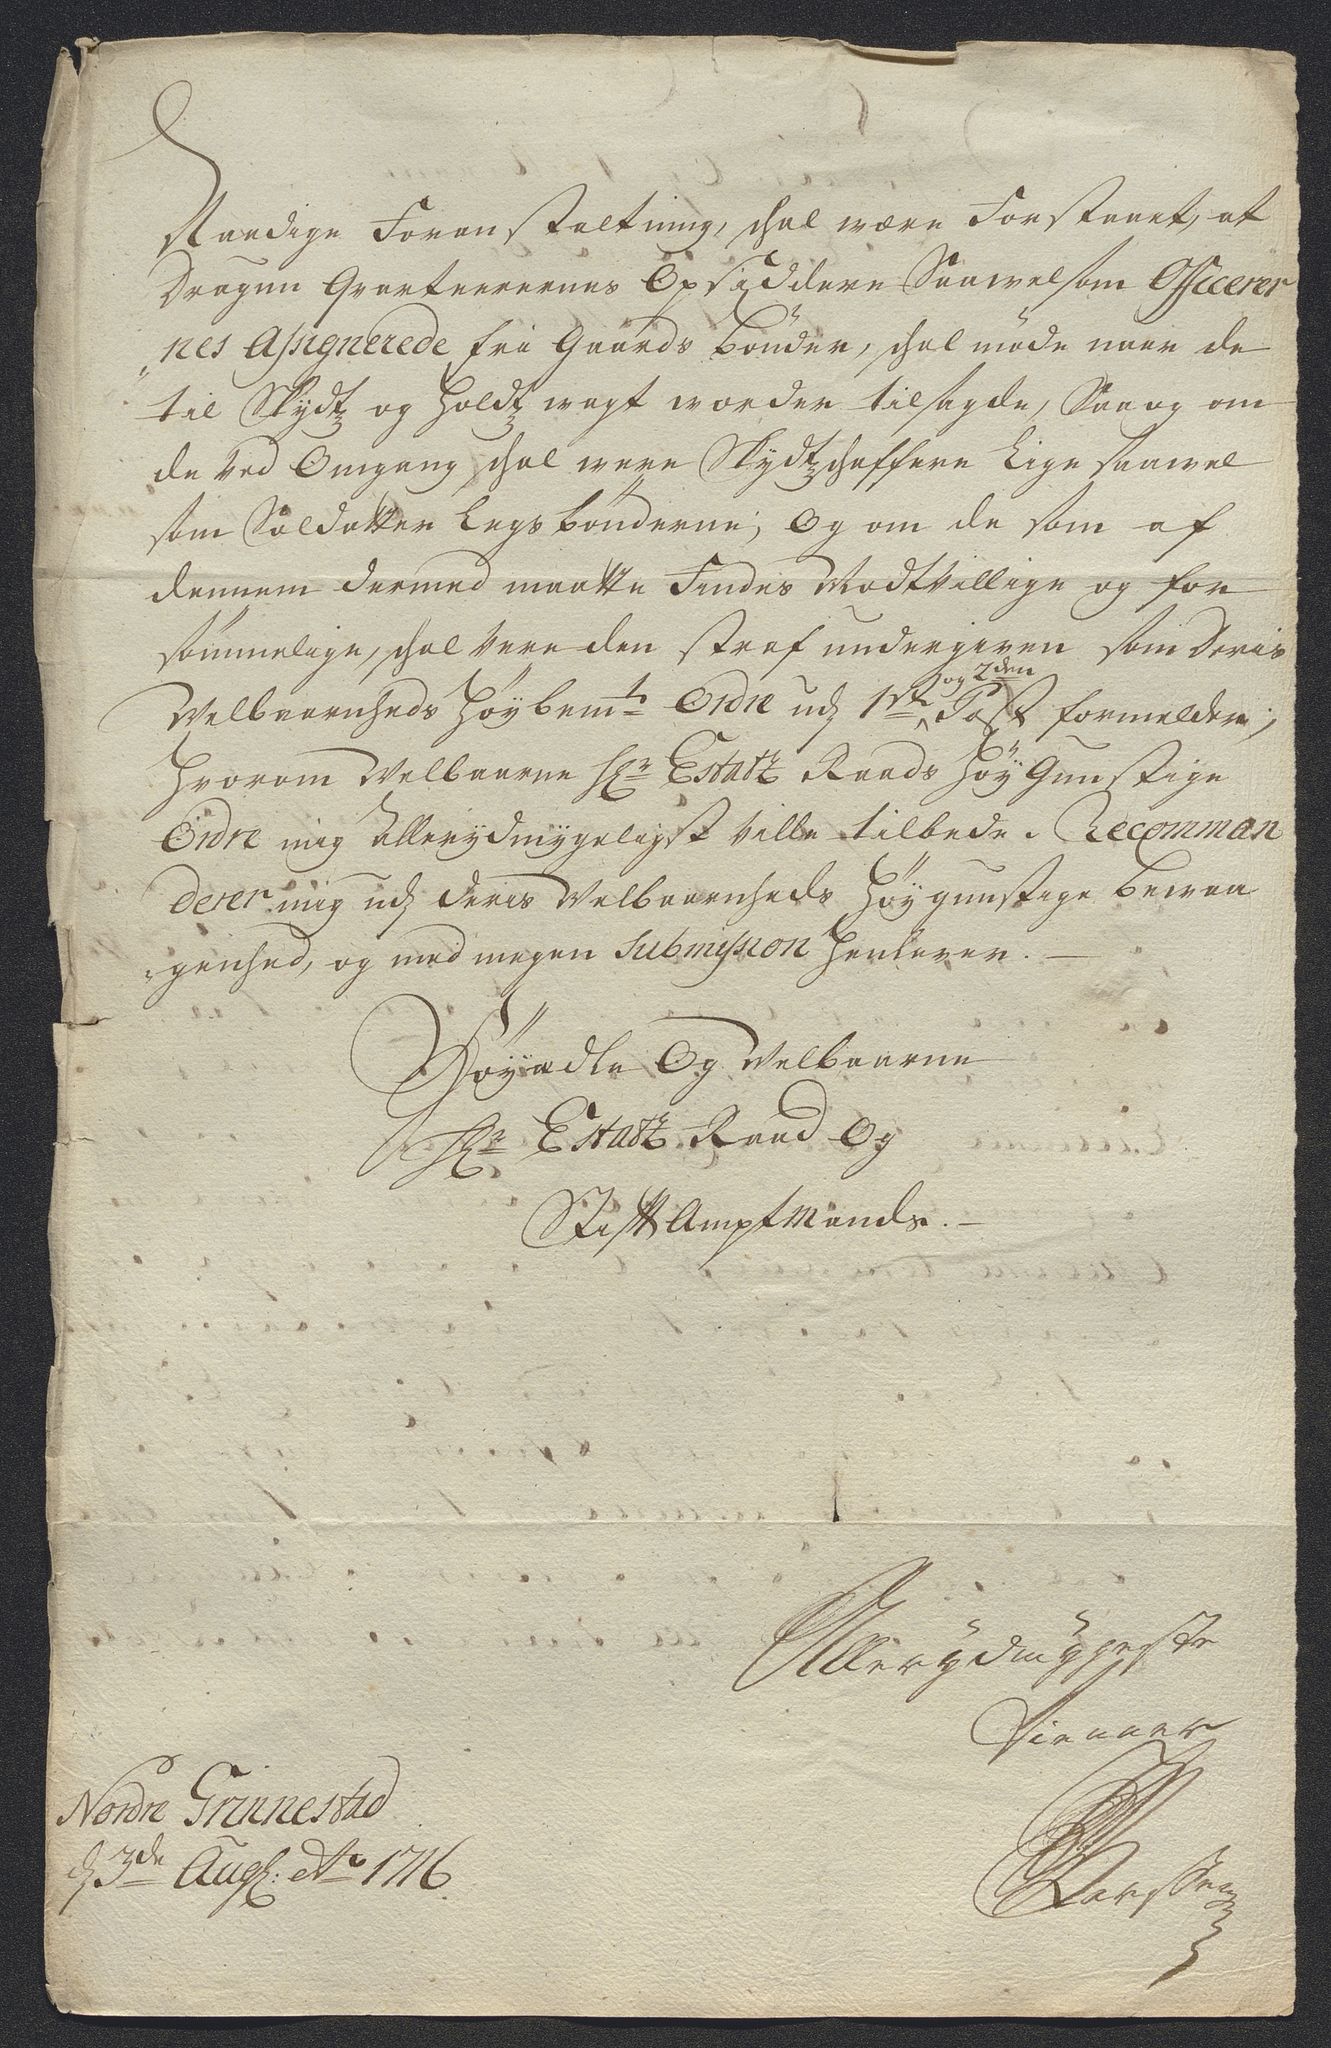 Naadige Foranstaltning, skal være Forstaaet, at
Dragun Qvarteerernes Opsiddere Saavelsom Officerer
"nes Assignerede frie Gaards bönder, skal möde naar de
til Skydtz og Holdtz wagt worder tilsagde, Saa og om
de ved Omgang skal were Skydtzskaffere Lige saavel
som Soldatter Legs bönderne; Og om de som af
dennem dermed maatte Findes Modtvillige og for
sömmelige, skal vere den straf undergiven som Deris
Velbaarnheds Höybemte Ordre udj 1ste og 2den Post formelder;
Hvorom Velbaarne Hr Estatz Raads Höy Gunstige
Ordre mig allerydmygeligst ville tilbede. Recomman
derer mig udj Deris Velbaarnheds Höygunstige bewaa
"genhed, og med megen Submission Henlever.
Höyædle Og Velbaarne
Hr Estatz Raad Og
Stiftt Amptmands.
Allerydmygeste
Tienner
Nordre Grinnestad
d 3de Augst: Ao 1716
Larssen